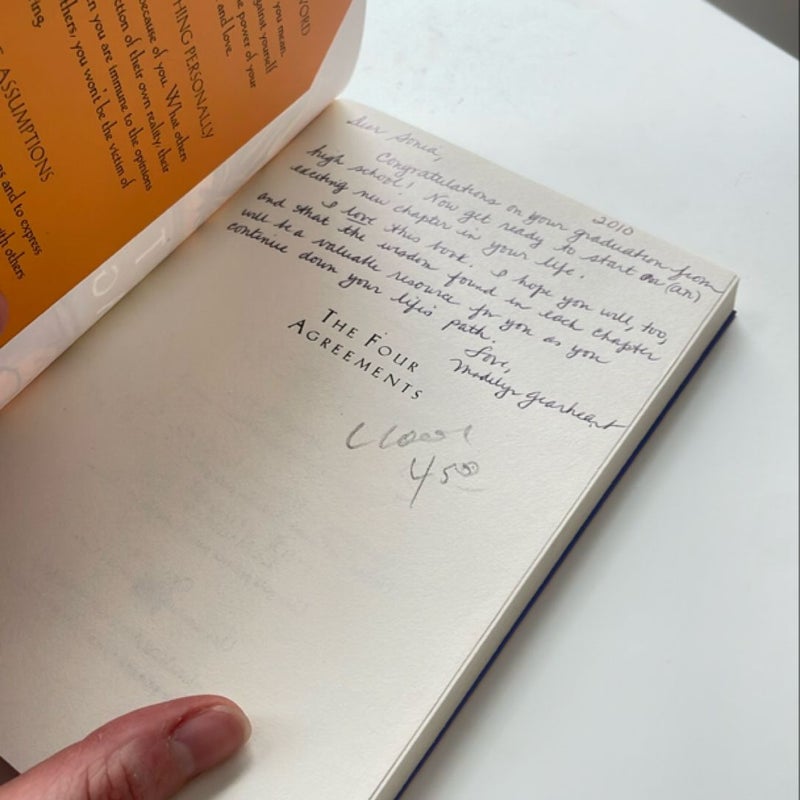 WORD
you mean.
against yourself
e power of your
and love.
HING PERSONALLY
because of you. What others
ction of their own reality, their
n you are immune to the opinions
thers, you won't be the victim of
ring.
E ASSUMPTIONS
ns and to express
ith others
2010
Dear Sonia,
Congratulations on your graduation from
high school! Now get ready to start on (an)
exciting new chapter in your life.
I love this book. I hope you will, too,
and that the wisdom found in each chapter
will be a valuable resource for you as you
continue down your life's path.
Love,
Madelyn Gearheart
THE FOUR
AGREEMENTS
450